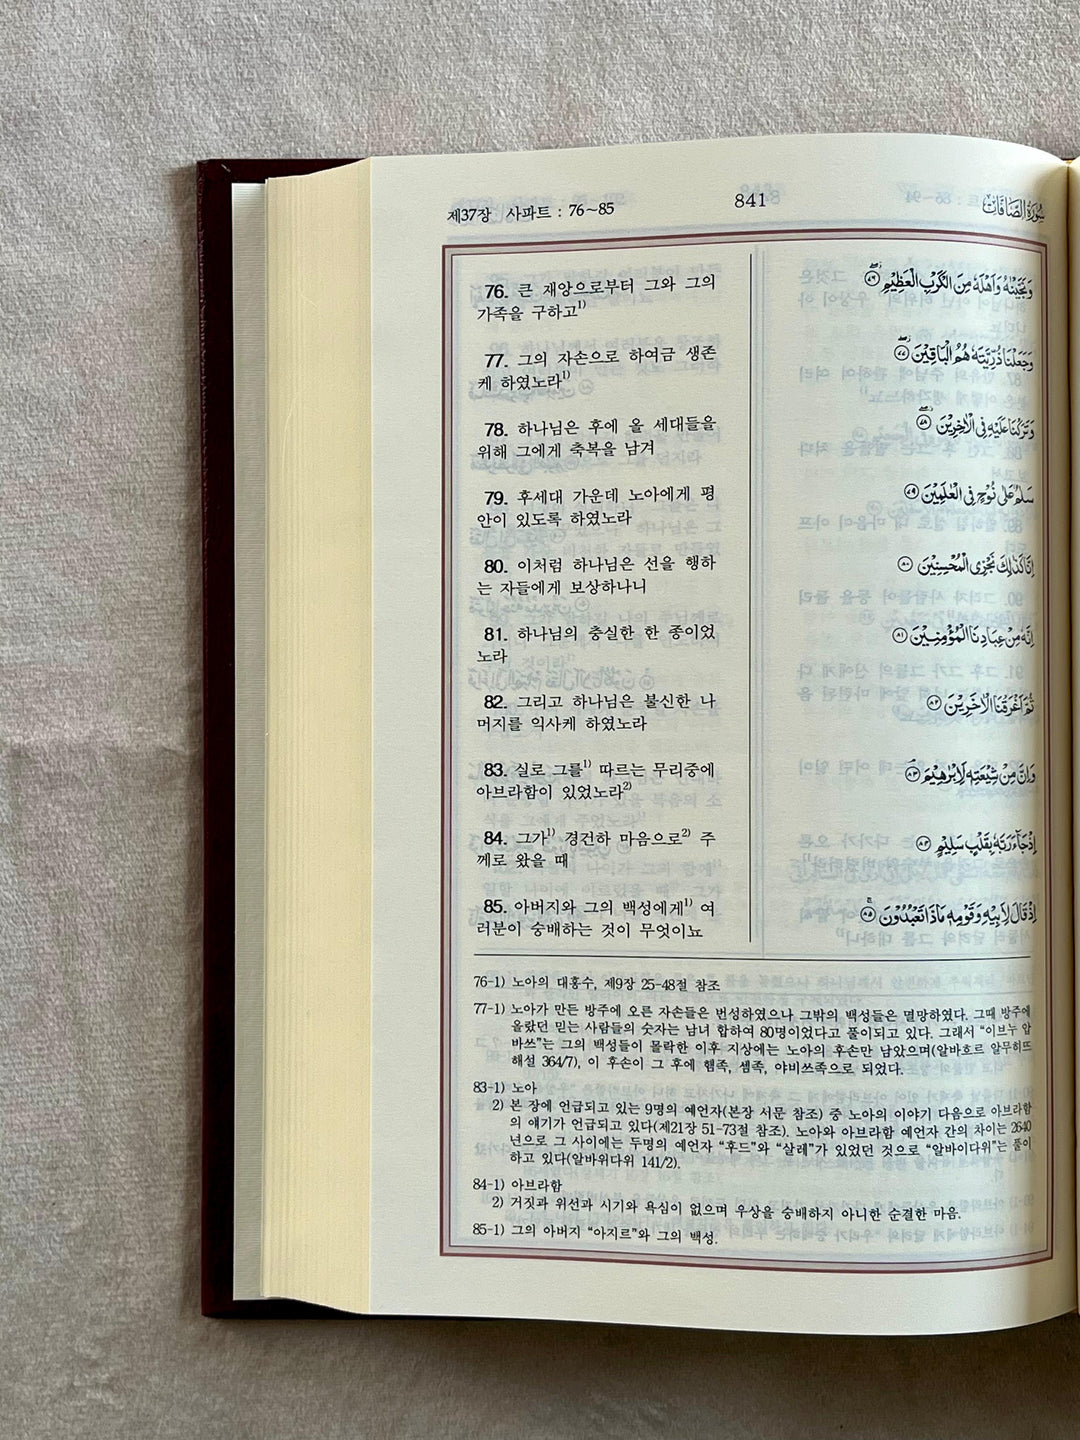 제37장 사파트 : 76~85
841
سُورَةُ الصَّافَّات
76. 큰 재앙으로부터 그와 그의
가족을 구하고1)
77. 그의 자손으로 하여금 생존
케 하였노라1)
78. 하나님은 후에 올 세대들을
위해 그에게 축복을 남겨
79. 후세대 가운데 노아에게 평
안이 있도록 하였노라
80. 이처럼 하나님은 선을 행하
는 자들에게 보상하나니
81. 하나님의 충실한 한 종이었
노라
82. 그리고 하나님은 불신한 나
머지를 익사케 하였노라
83. 실로 그를1) 따르는 무리중에
아브라함이 있었노라2)
84. 그가1) 경건하 마음으로2) 주
께로 왔을 때
85. 아버지와 그의 백성에게1) 여
러분이 숭배하는 것이 무엇이뇨
وَنَجَّيْنٰهُ وَاَهْلَهٗ مِنَ الْكَرْبِ الْعَظِيْمِ ۝٧٦
وَجَعَلْنَا ذُرِّيَّتَهٗ هُمُ الْبَاقِيْنَ ۝٧٧
وَتَرَكْنَا عَلَيْهِ فِي الْاٰخِرِيْنَ ۝٧٨
سَلٰمٌ عَلٰى نُوْحٍ فِي الْعٰلَمِيْنَ ۝٧٩
اِنَّا كَذٰلِكَ نَجْزِي الْمُحْسِنِيْنَ ۝٨٠
اِنَّهٗ مِنْ عِبَادِنَا الْمُؤْمِنِيْنَ ۝٨١
ثُمَّ اَغْرَقْنَا الْاٰخَرِيْنَ ۝٨٢
وَاِنَّ مِنْ شِيْعَتِهٖ لَاِبْرٰهِيْمَ ۝٨٣
اِذْ جَآءَ رَبَّهٗ بِقَلْبٍ سَلِيْمٍ ۝٨٤
اِذْ قَالَ لِاَبِيْهِ وَقَوْمِهٖ مَاذَا تَعْبُدُوْنَ ۝٨٥
76-1) 노아의 대홍수, 제9장 25-48절 참조
77-1) 노아가 만든 방주에 오른 자손들은 번성하였으나 그밖의 백성들은 멸망하였다. 그때 방주에
올랐던 믿는 사람들의 숫자는 남녀 합하여 80명이었다고 풀이되고 있다. 그래서 “이브누 압
바쓰”는 그의 백성들이 몰락한 이후 지상에는 노아의 후손만 남았으며(알바흐르 알무히뜨
해설 364/7), 이 후손이 그 후에 햄족, 셈족, 야비쓰족으로 되었다.
83-1) 노아
2) 본 장에 언급되고 있는 9명의 예언자(본장 서문 참조) 중 노아의 이야기 다음으로 아브라함
의 얘기가 언급되고 있다(제21장 51-73절 참조). 노아와 아브라함 예언자 간의 차이는 2640
년으로 그 사이에는 두명의 예언자 “후드”와 “살레”가 있었던 것으로 “알바이다위”는 풀이
하고 있다(알바위다위 141/2).
84-1) 아브라함
2) 거짓과 위선과 시기와 욕심이 없으며 우상을 숭배하지 아니한 순결한 마음.
85-1) 그의 아버지 “아지르”와 그의 백성.